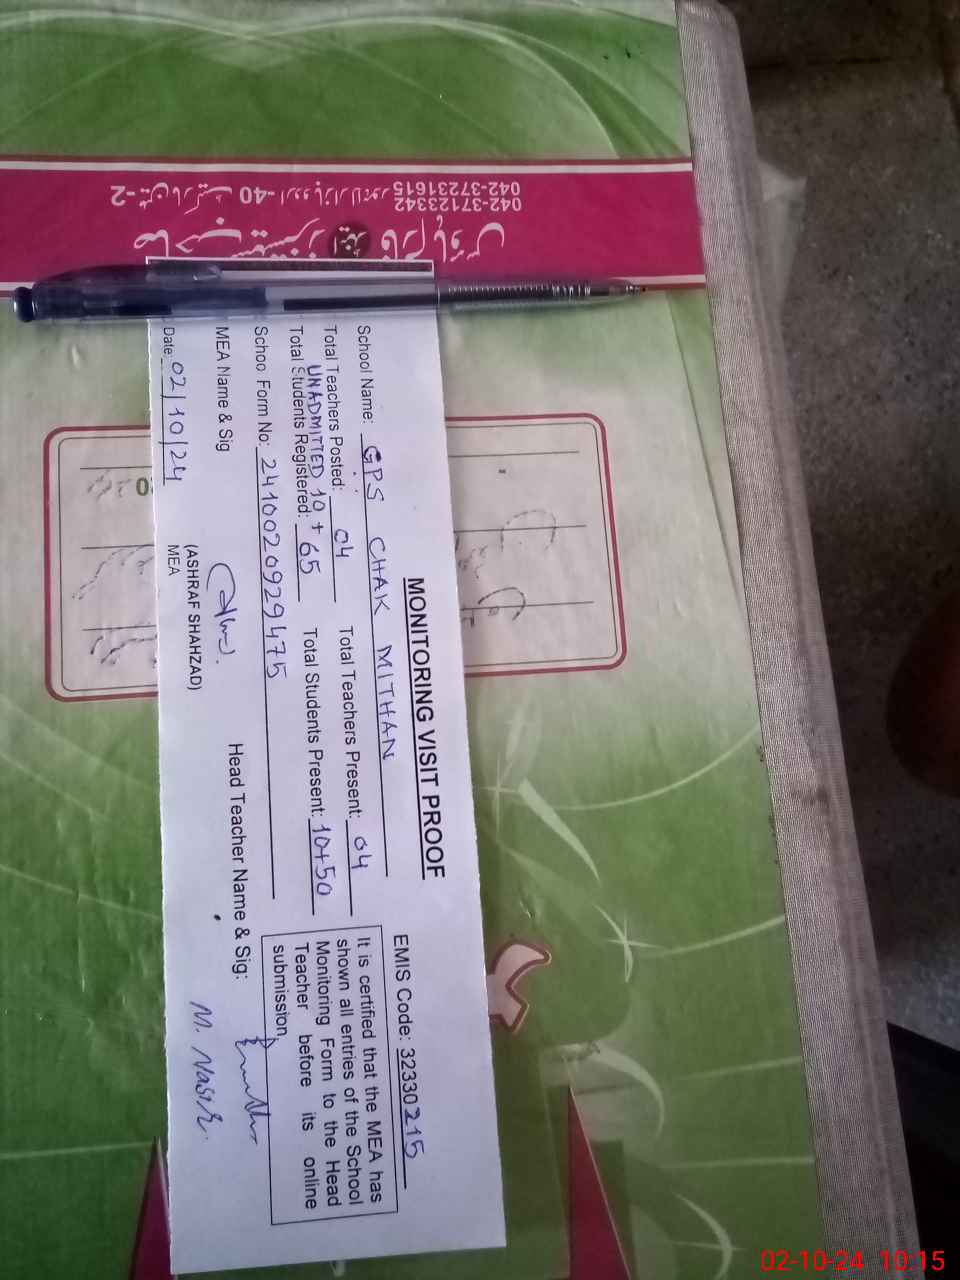 MONITORING VISIT PROOF
EMIS Code: 32330215
School Name: GPS CHAK MITHAN
Total Teachers Posted: 04 Total Teachers Present: 04
UNADMITTED 10 +
Total Students Registered: 65 Total Students Present: 10+50
Schoo Form No: 2410020929475
It is certified that the MEA has
shown all entries of the School
Monitoring Form to the Head
Teacher before its online
submission.
MEA Name & Sig
Head Teacher Name & Sig:
(ASHRAF SHAHZAD)
MEA
M. Nasir
Date: 02/10/24
042-37123342
042-37231615
02-10-24 10:15